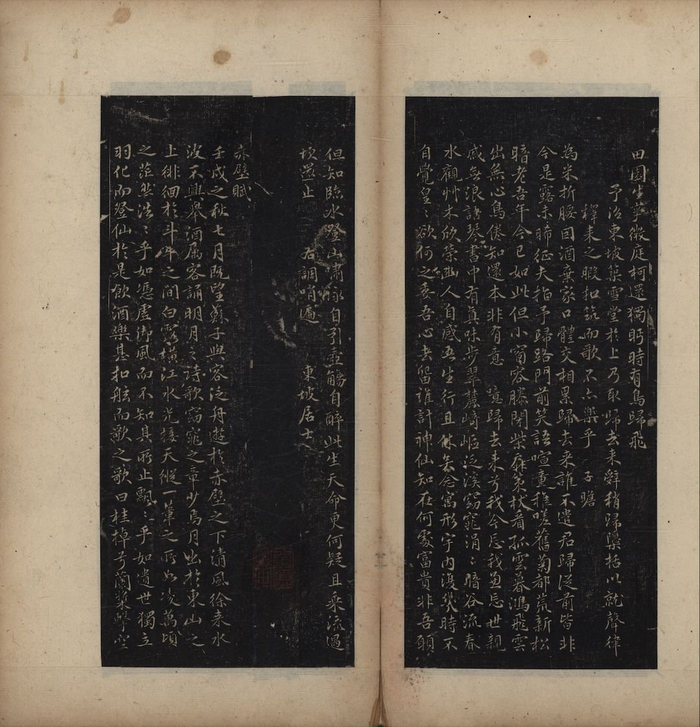 田園生夢庭柯還獨眄時有鳥歸飛
予治東坡築雪堂於上乃取歸去來辭稍歸檃括以就聲律
釋耒之暇扣筑而歌不亦樂乎 子瞻
為米折腰因酒棄家口體交相累歸去來誰不遣君歸從前皆非
今是露未晞征夫指予歸路門前笑語喧童稚嗟舊菊都荒新松
暗老吾年今已如此但小窗容膝閉柴扉策杖看孤雲暮鴻飛雲
出無心鳥倦知還本非有意 噫歸去來兮我今忘我兼忘世親
戚無浪語琴書中有真味步翠麓崎嶇泛溪窈窕涓〻暗谷流春
水觀艸木欣榮幽人自感吾生行且休矣念寓形宇內復幾時不
自覺皇〻欲何之委吾心去留誰計神仙知在何處富貴非吾願
但知臨水登山嘯詠自引壺觴自醉此生天命更何疑且乘流遇
坎還止 右調哨遍 東坡居士
赤壁賦
壬戌之秋七月既望蘇子與客泛舟遊於赤壁之下清風徐來水
波不興舉酒属客誦明月之詩歌窈窕之章少焉月出於東山之
上徘徊於斗牛之間白露橫江水光接天縱一葦之所如凌萬頃
之茫然浩〻乎如憑虛御風而不知其所止飄〻乎如遺世獨立
羽化而登仙於是飲酒樂甚扣舷而歌之歌曰桂棹兮蘭槳擊空